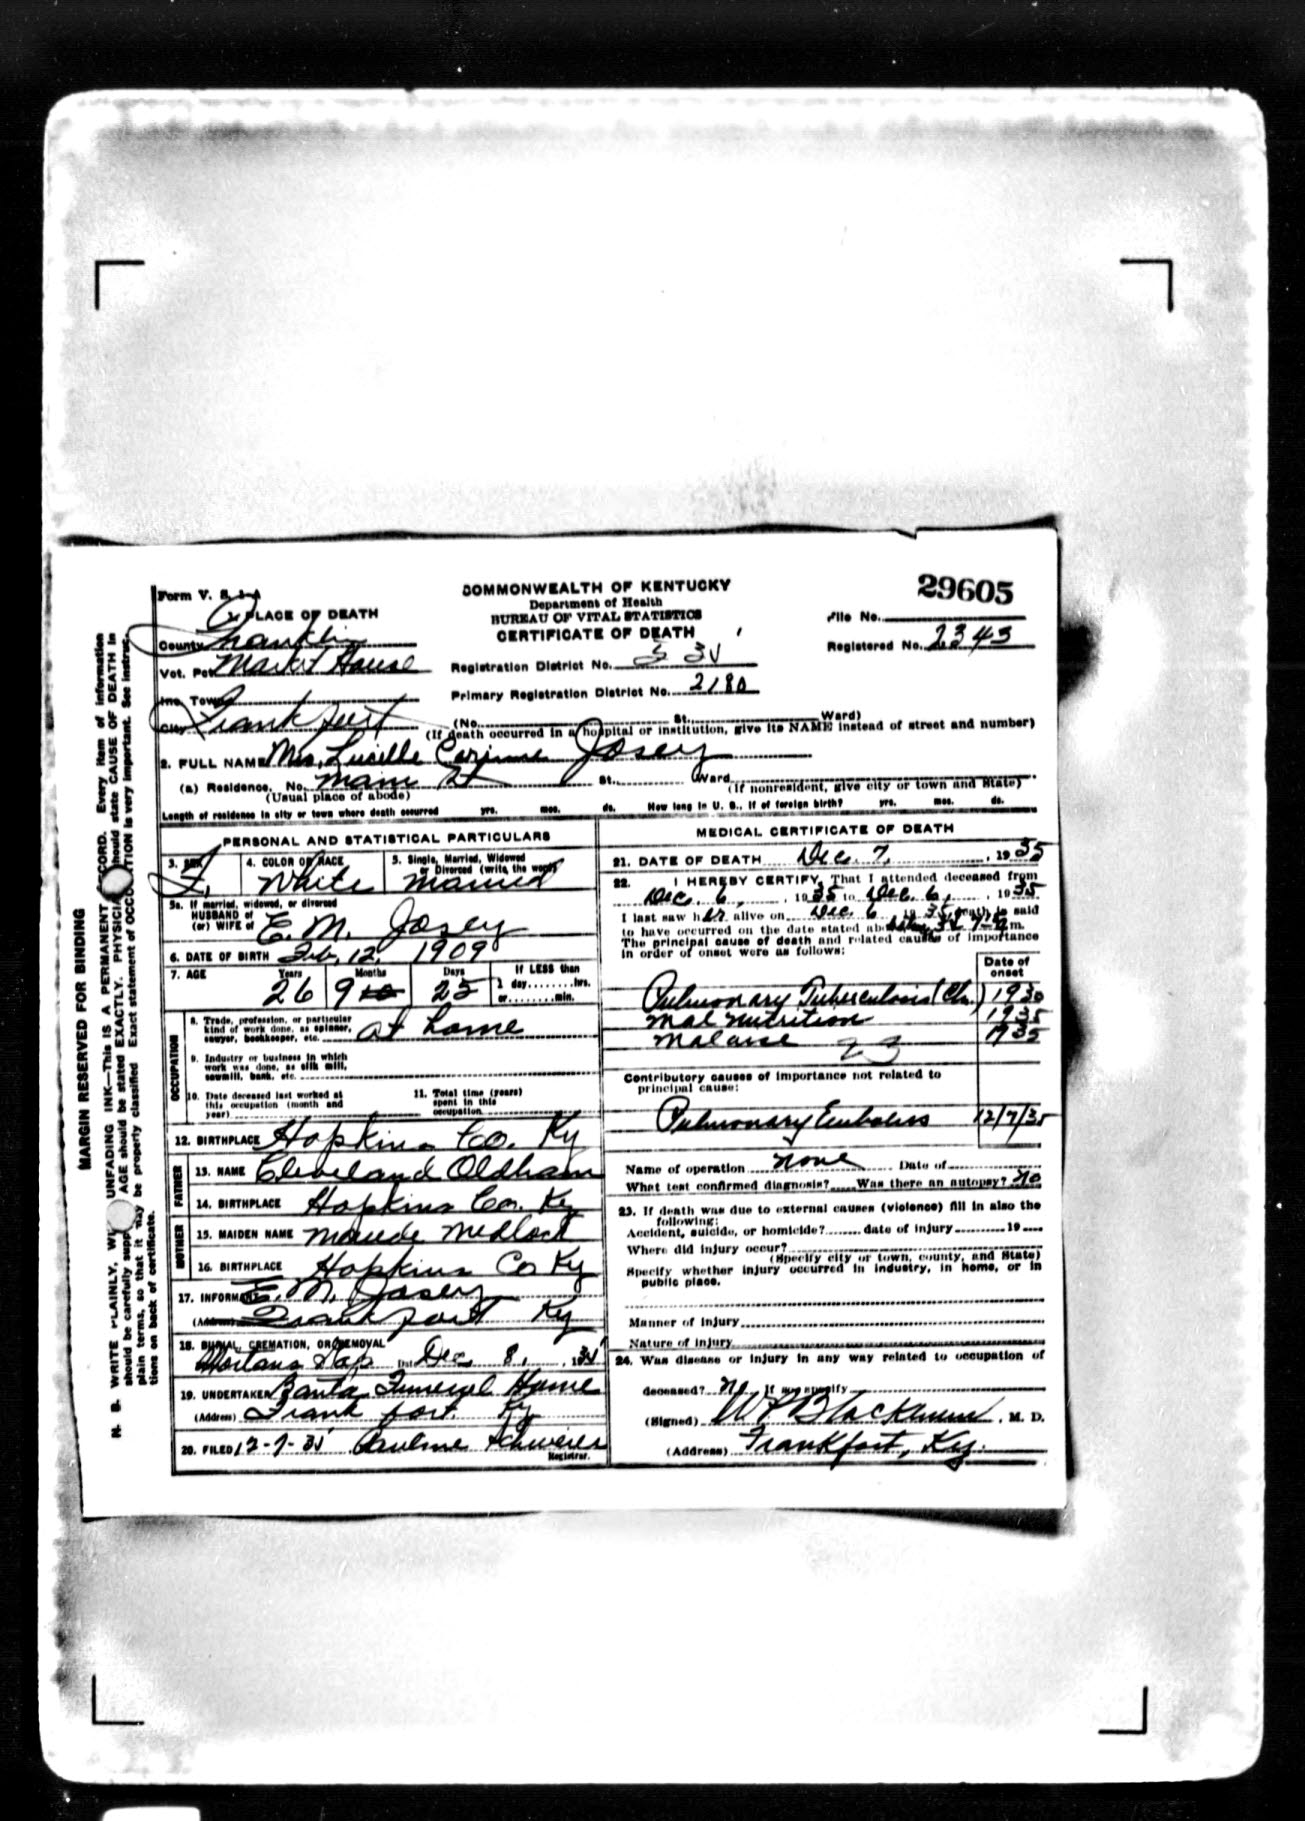 Form V. S. 1-A
COMMONWEALTH OF KENTUCKY
Department of Health
BUREAU OF VITAL STATISTICS
CERTIFICATE OF DEATH
29605
File No.
Registered No. 2343
1. PLACE OF DEATH
County Franklin
Vot. Pct. Market House
Inc. Town
City Frankfort
Registration District No.
Primary Registration District No. 2180
(No. St., Ward)
(If death occurred in a hospital or institution, give its NAME instead of street and number)
2. FULL NAME Mrs. Lucille Corinne Josey
(a) Residence. No. Main St St., Ward,
(Usual place of abode) (If nonresident, give city or town and State)
Length of residence in city or town where death occurred yrs. mos. ds. How long in U. S., if of foreign birth? yrs. mos. ds.
PERSONAL AND STATISTICAL PARTICULARS
3. SEX F.
4. COLOR OR RACE White
5. Single, Married, Widowed or Divorced (write the word) Married
5a. If married, widowed, or divorced
HUSBAND of
(or) WIFE of E. M. Josey
6. DATE OF BIRTH Feb. 12, 1909
7. AGE Years 26 Months 9 10 Days 25 If LESS than 1 day hrs. or min.
OCCUPATION
8. Trade, profession, or particular
kind of work done, as spinner,
sawyer, bookkeeper, etc. at home
9. Industry or business in which
work was done, as silk mill,
sawmill, bank, etc.
10. Date deceased last worked at
this occupation (month and
year)
11. Total time (years)
spent in this
occupation
12. BIRTHPLACE Hopkins Co. Ky
FATHER
13. NAME Cleveland Oldham
14. BIRTHPLACE Hopkins Co. Ky
MOTHER
15. MAIDEN NAME Maude Medlock
16. BIRTHPLACE Hopkins Co Ky
17. INFORMANT E. M. Josey
(Address) Frankfort Ky
18. BURIAL, CREMATION, OR REMOVAL
Mortons Gap Date Dec 8, 19
19. UNDERTAKER Funeral Home
(Address) Frankfort. Ky
20. FILED 12-7-35 Pauline
Registrar.
MEDICAL CERTIFICATE OF DEATH
21. DATE OF DEATH Dec. 7, , 1935
22. I HEREBY CERTIFY, That I attended deceased from
Dec. 6, , 1935 to Dec. 6, , 1935
I last saw her alive on Dec. 6 1935, death is said
to have occurred on the date stated above, m.
The principal cause of death and related causes of importance
in order of onset were as follows:
Date of
onset
Pulmonary Tuberculosis (Ch.) 1930
Mal nutrition 1935
Malaise 1935
23
Contributory causes of importance not related to
principal cause:
Pulmonary Embolus 12/7/35
Name of operation none Date of
What test confirmed diagnosis? Was there an autopsy? no
23. If death was due to external causes (violence) fill in also the
following:
Accident, suicide, or homicide? date of injury 19
Where did injury occur?
(Specify city or town, county, and State)
Specify whether injury occurred in industry, in home, or in
public place.
Manner of injury
Nature of injury
24. Was disease or injury in any way related to occupation of
deceased? No If so, specify
(Signed) , M. D.
(Address) Frankfort, Ky.
MARGIN RESERVED FOR BINDING
N. B. WRITE PLAINLY, WITH UNFADING INK—THIS IS A PERMANENT RECORD. Every item of information
should be carefully supplied. AGE should be stated EXACTLY. PHYSICIANS should state CAUSE OF DEATH in
plain terms, so that it may be properly classified. Exact statement of OCCUPATION is very important. See instruc-
tions on back of certificate.